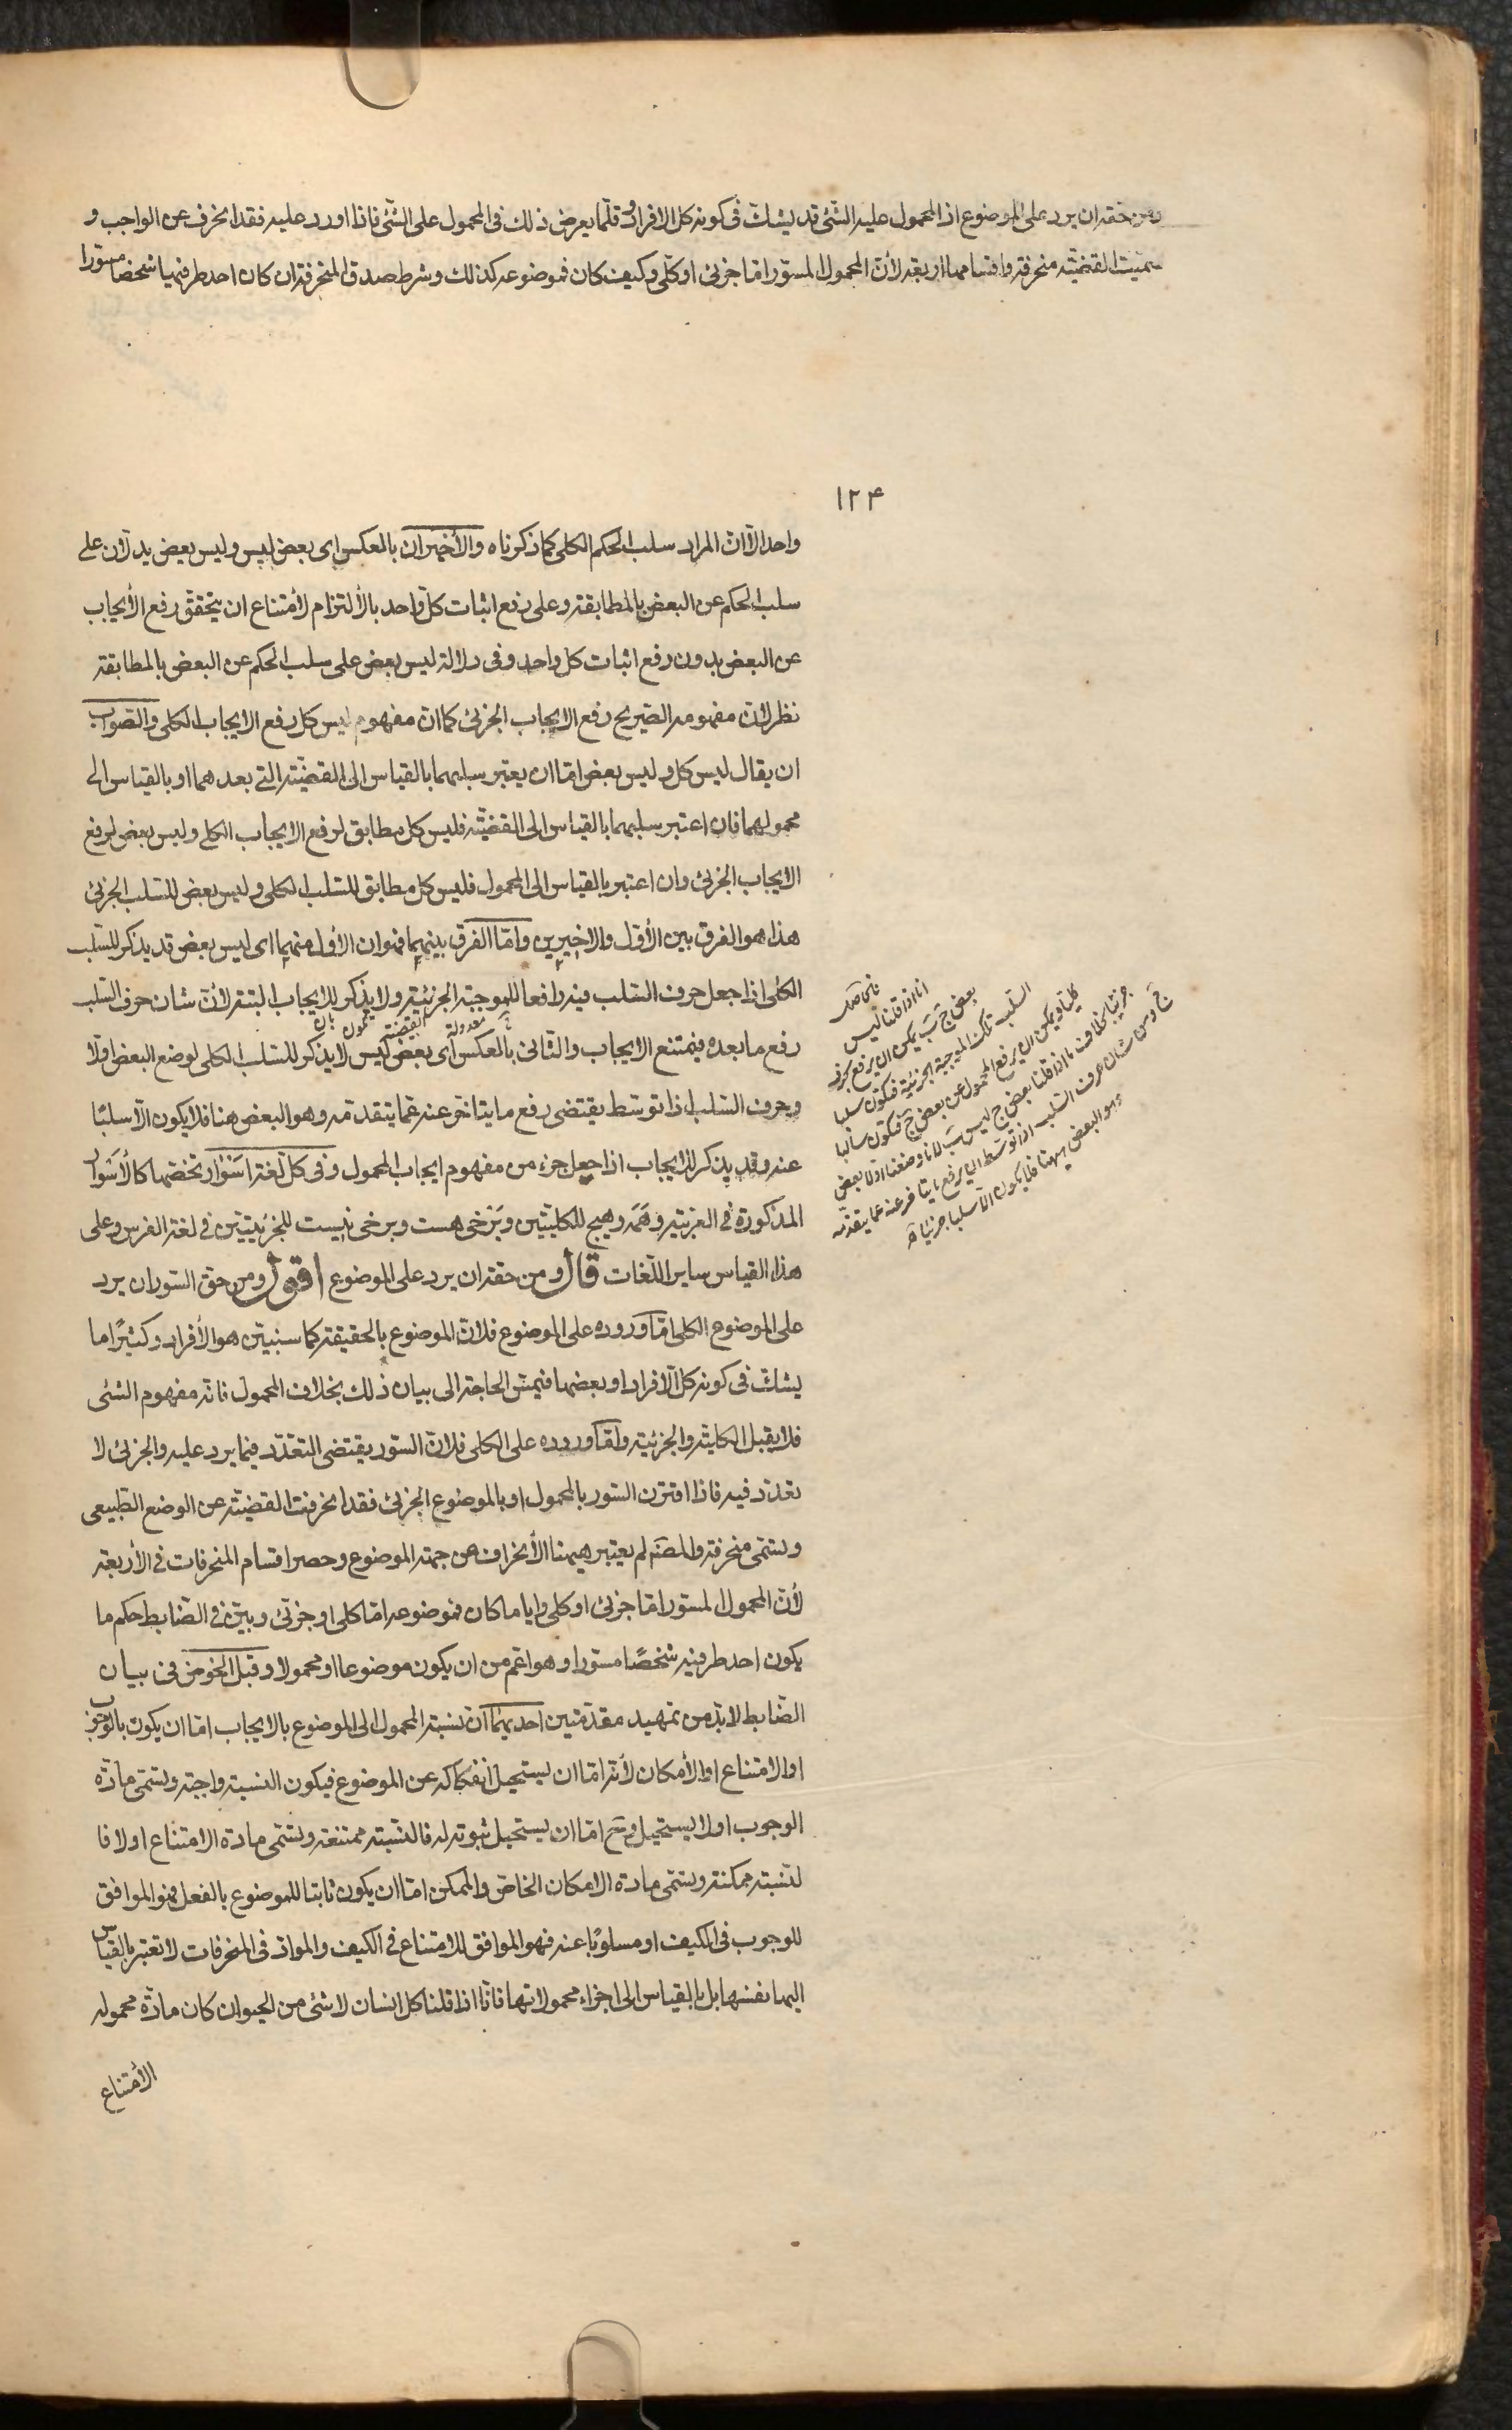 ومن حقه ان يرد على الموضوع اذ المحمول عليه الشئ قد يشك فى كونه كل الافراد وقلما يعرض ذلك فى المحمول على الشئ فاذا اورد عليه فقد انحرف عن الواجب و
سميت القضية منحرفة واقسامها اربعة لأن المحمول المسور اما جزئى او كلى وكيف كان فموضوعه كذلك وشرط صدق المنحرفة ان كان احد طرفيها شخصا مسورا
١٢۴
واحد الا ان المراد سلب الحكم الكلى كما ذكرناه والأخيران بالعكس اى بعض ليس وليس بعض يدلان على
سلب الحكم عن البعض بالمطابقة وعلى رفع اثبات كل واحد بالألتزام لأمتناع ان يتحقق رفع الأيجاب
عن البعض بدون رفع اثبات كل واحد وفى دلالة ليس بعض على سلب الحكم عن البعض بالمطابقة
نظر لان مفهومه الصريح رفع الايجاب الجزئى كما ان مفهوم ليس كل رفع الايجاب الكلى والصواب
ان يقال ليس كل وليس بعض اما ان يعتبر سلبهما بالقياس الى القضية التى بعدهما او بالقياس الى
محمولهما فان اعتبر سلبهما بالقياس الى القضية فليس كل مطابق لرفع الايجاب الكلى وليس بعض لرفع
الايجاب الجزئى وان اعتبر بالقياس الى المحمول فليس كل مطابق للسلب الكلى وليس بعض للسلب الجزئى
هذا هو الفرق بين الأول والاخيرين واما الفرق بينهما فهو ان الأول منهما اى ليس بعض قد يذكر للسلب
الكلى اذا جعل حرف السلب فيه رافعا للموجبة الجزئية ولا يذكر للايجاب البتة لأن شان حرف السلب
رفع ما بعده فيمتنع الايجاب والثانى بالعكس اى بعض ليس لا يذكر للسلب الكلى لوضع البعض اولا
معدولة القضية
وحرف السلب اذا توسط يقتضى رفع ما يتاخر عنه عما يتقدمه وهو البعض هنا فلا يكون الا سلبًا
عنه وقد يذكر للايجاب اذا جعل جزء من مفهوم ايجاب المحمول وفى كل لغة اسوار تخصها كالأسوار
المذكورة فى العربية وهمه وهيچ للكليتين وبرخى هست وبرخى نيست للجزئيتين فى لغة الفرس وعلى
هذا القياس ساير اللغات قال ومن حقه ان يرد على الموضوع اقول ومن حق السور ان يرد
على الموضوع الكلى اما وروده على الموضوع فلان الموضوع بالحقيقة كما سنبين هو الأفراد وكثيرًا ما
يشك فى كونه كل الافراد او بعضها فيمس الحاجة الى بيان ذلك بخلاف المحمول فانه مفهوم الشئ
فلا يقبل الكلية والجزئية واما وروده على الكلى فلان السور يقتضى التعدد فيما يرد عليه والجزئى لا
تعدد فيه فاذا اقترن السور بالمحمول او بالموضوع الجزئى فقد انحرفت القضية عن الوضع الطبيعى
وتسمى منحرفة والمصنم لم يعتبر هيهنا الأنحراف عن جهة الموضوع وحصر اقسام المنحرفات فى الأربعة
لأن المحمول المسور اما جزئى او كلى وايا ما كان فموضوعه اما كلى او جزئى وبين فى الضابط حكم ما
يكون احد طرفيه شخصًا مسورا وهو اعم من ان يكون موضوعا او محمولا وقبل الخوض فى بيان
الضابط لا بد من تمهيد مقدمتين احديهما ان نسبة المحمول الى الموضوع بالايجاب اما ان يكون بالوجوب
او الامتناع او الأمكان لأنه اما ان يستحيل انفكاكه عن الموضوع فيكون النسبة واجبة وتسمى مادة
الوجوب او لا يستحيل وح اما ان يستحيل ثبوته له فالنسبة ممتنعة وتسمى مادة الامتناع او لا فا
لنسبة ممكنة وتسمى مادة الامكان الخاص والممكن اما ان يكون ثابتا للموضوع بالفعل فهو الموافق
للوجوب فى الكيف او مسلوبًا عنه فهو الموافق للامتناع فى الكيف والمواد فى المنحرفات لا تعتبر بالقياس
اليها نفسها بل بالقياس الى اجزاء محمولاتها فانا اذا قلنا كل انسان لا شئ من الحيوان كان مادة محموله
الأمتناع
انا اذا قلنا ليس
بعض ج ب يمكن ان يرفع بحرف
السلب تلك الموجبة الجزئية فتكون سلبا
كليا ويمكن ان يرفع المحمول عن بعض ج فتكون سالبا
جزئيا بخلاف ما اذا قلنا بعض ج ليس ب لانا وضعنا اولا بعض
ج ومن شان حرف السلب اذا توسط ان يرفع ما يتاخر عنه عما يتقدمه
وهو البعض هيهنا فلا يكون الا سلبا جزئيا